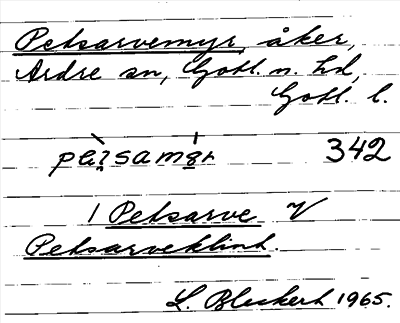 Petsarvemyr, åker,
Ardre sn, Gotl. n. hd,
Gotl. l.
342
1 Petsarve V
Petsarveklint.
L. Bleckert 1965.